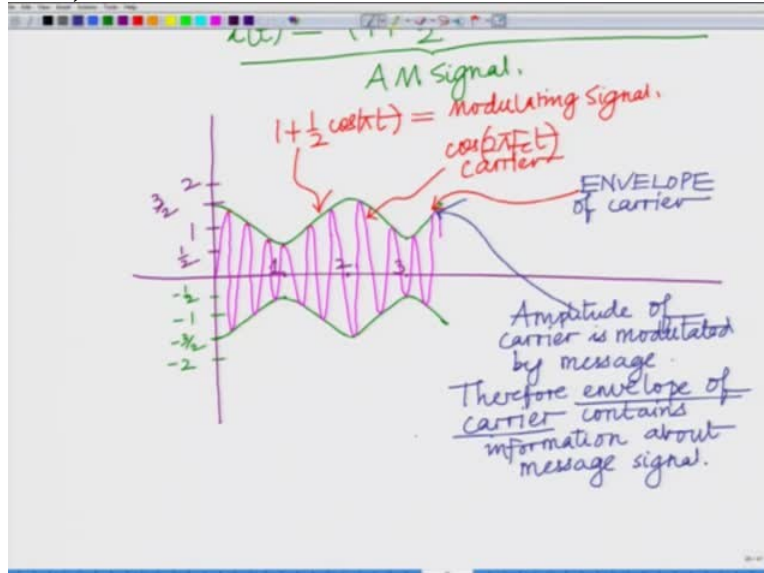 AM Signal.
1+½ cos(πt) = Modulating Signal.
cos(2πFct)
carrier
ENVELOPE
of carrier
2
3/2
1
½
1
2
3
-½
-1
-3/2
-2
Amplitude of
carrier is modulated
by message.
Therefore envelope of
carrier contains
information about
message signal.